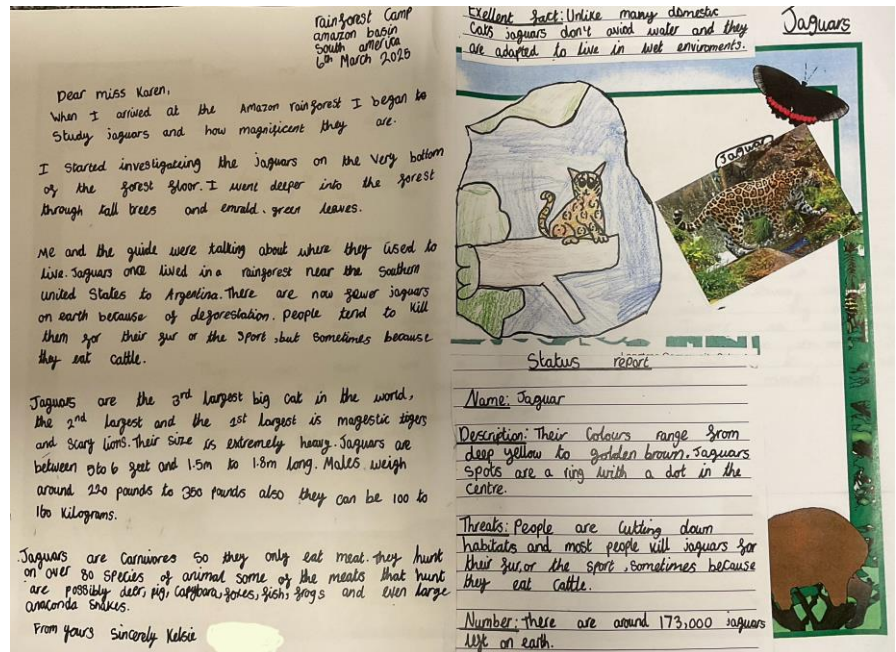 rainforest Camp
amazon basin
South america
6th March 2025
Dear miss Karen,
When I arrived at the Amazon rainforest I began to
Study jaguars and how magnificent they are.
I started investigateing the jaguars on the very bottom
of the forest floor. I went deeper into the forest
through tall trees and emrald. green leaves.
Me and the guide were talking about where they used to
live. Jaguars once lived in a rainforest near the Southern
united States to Argentina. There are now fewer jaguars
on earth because of deforestation. People tend to kill
them for their fur or the sport, but sometimes because
they eat cattle.
Jaguars are the 3rd largest big cat in the world,
the 2nd largest and the 1st largest is magestic tigers
and scary lions. Their size is extremely heavy. Jaguars are
between 5 to 6 feet and 1.5m to 1.8m long. Males weigh
around 220 pounds to 350 pounds also they can be 100 to
160 kilograms.
Jaguars are Carnivores So they only eat meat. They hunt
on over 80 species of animal some of the meats that hunt
are possibly deer, pig, Capybara, foxes, fish, frogs and even large
anaconda snakes.
From yours Sincerely Kelsie
Exellent fact: Unlike many domestic
Cats jaguars don't aviod water and they
are adapted to live in wet enviroments.
Jaguars
Jaguar
Status report
Name: Jaguar
Description: Their Colours range from
deep yellow to golden brown. Jaguars
spots are a ring with a dot in the
centre.
Threats: People are Cutting down
habitats and most people kill jaguars for
their fur, or the sport, Sometimes because
they eat Cattle.
Number: There are around 173,000 jaguars
left on earth.